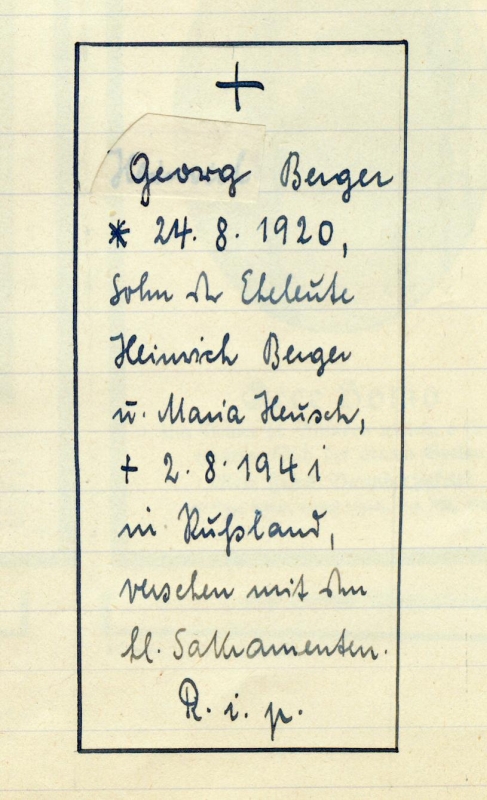 +
Georg Berger
* 24. 8. 1920,
Sohn der Eheleute
Heinrich Berger
u. Maria Heusch,
+ 2. 8. 1941
in Rußland,
versehen mit den
hl. Sakramenten.
R. i. p.